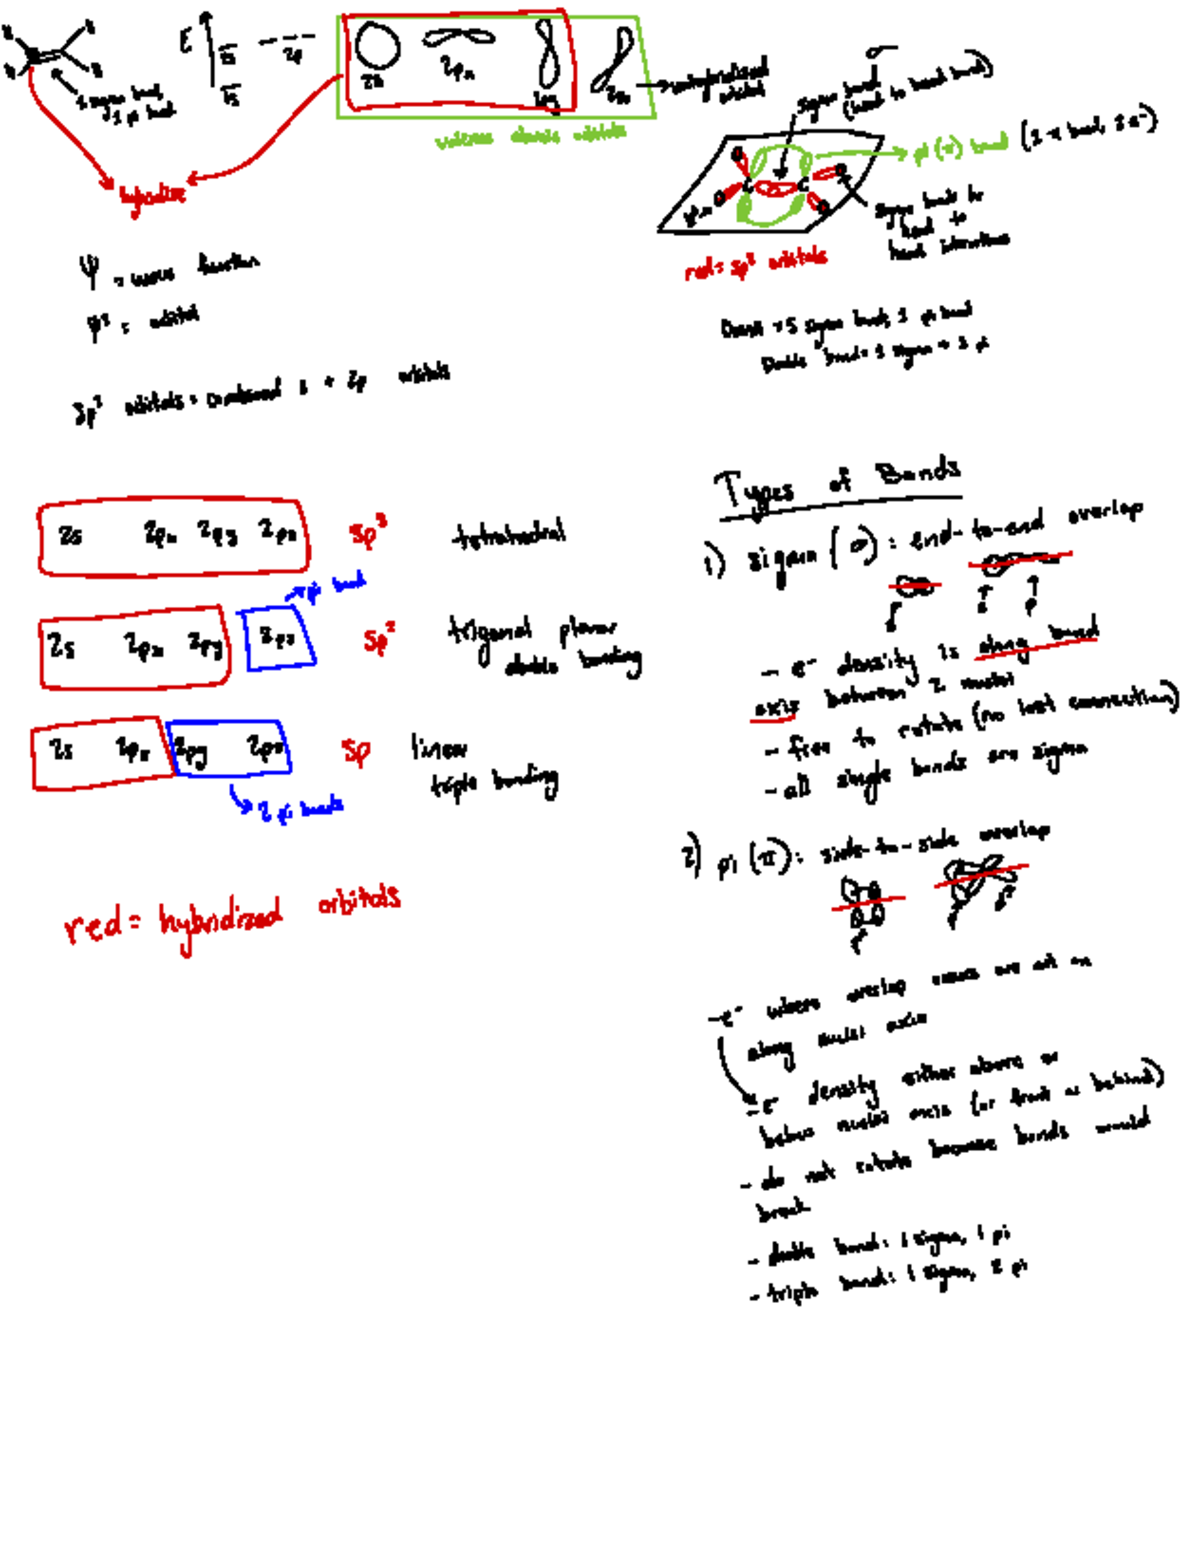 H H
H H
1 sigma bond,
1 pi bond
E
2s
1s
2p
2s
2px
2py
2pz
unhybridized
orbital
valence atomic orbitals
hybridize
sigma bond
(head to head bond)
pi (π) bond (1 π bond, 2 e⁻)
C C
sigma bonds b/c
head to
head interactions
red = sp² orbitals
ψ = wave function
ψ² = orbital
5 sigma bond, 1 pi bond
Double bond = 1 sigma + 1 pi
sp² orbitals = combined s + 2p orbitals
2s 2px 2py 2pz sp³ tetrahedral
pi bond
2s 2px 2py 2pz sp² trigonal planar
double bonding
2s 2px 2py 2pz sp linear
triple bonding
2 pi bonds
red = hybridized orbitals
Types of Bonds
1) sigma (σ): end-to-end overlap
s p
- e⁻ density is along bond
axis between 2 nuclei
- free to rotate (no lost connection)
- all single bonds are sigma
2) pi (π): side-to-side overlap
- e⁻ where overlap occurs are not on
along nuclei axis
- e⁻ density either above or
below nuclei axis (or front or behind)
- do not rotate because bonds would
break
- double bond: 1 sigma, 1 pi
- triple bond: 1 sigma, 2 pi